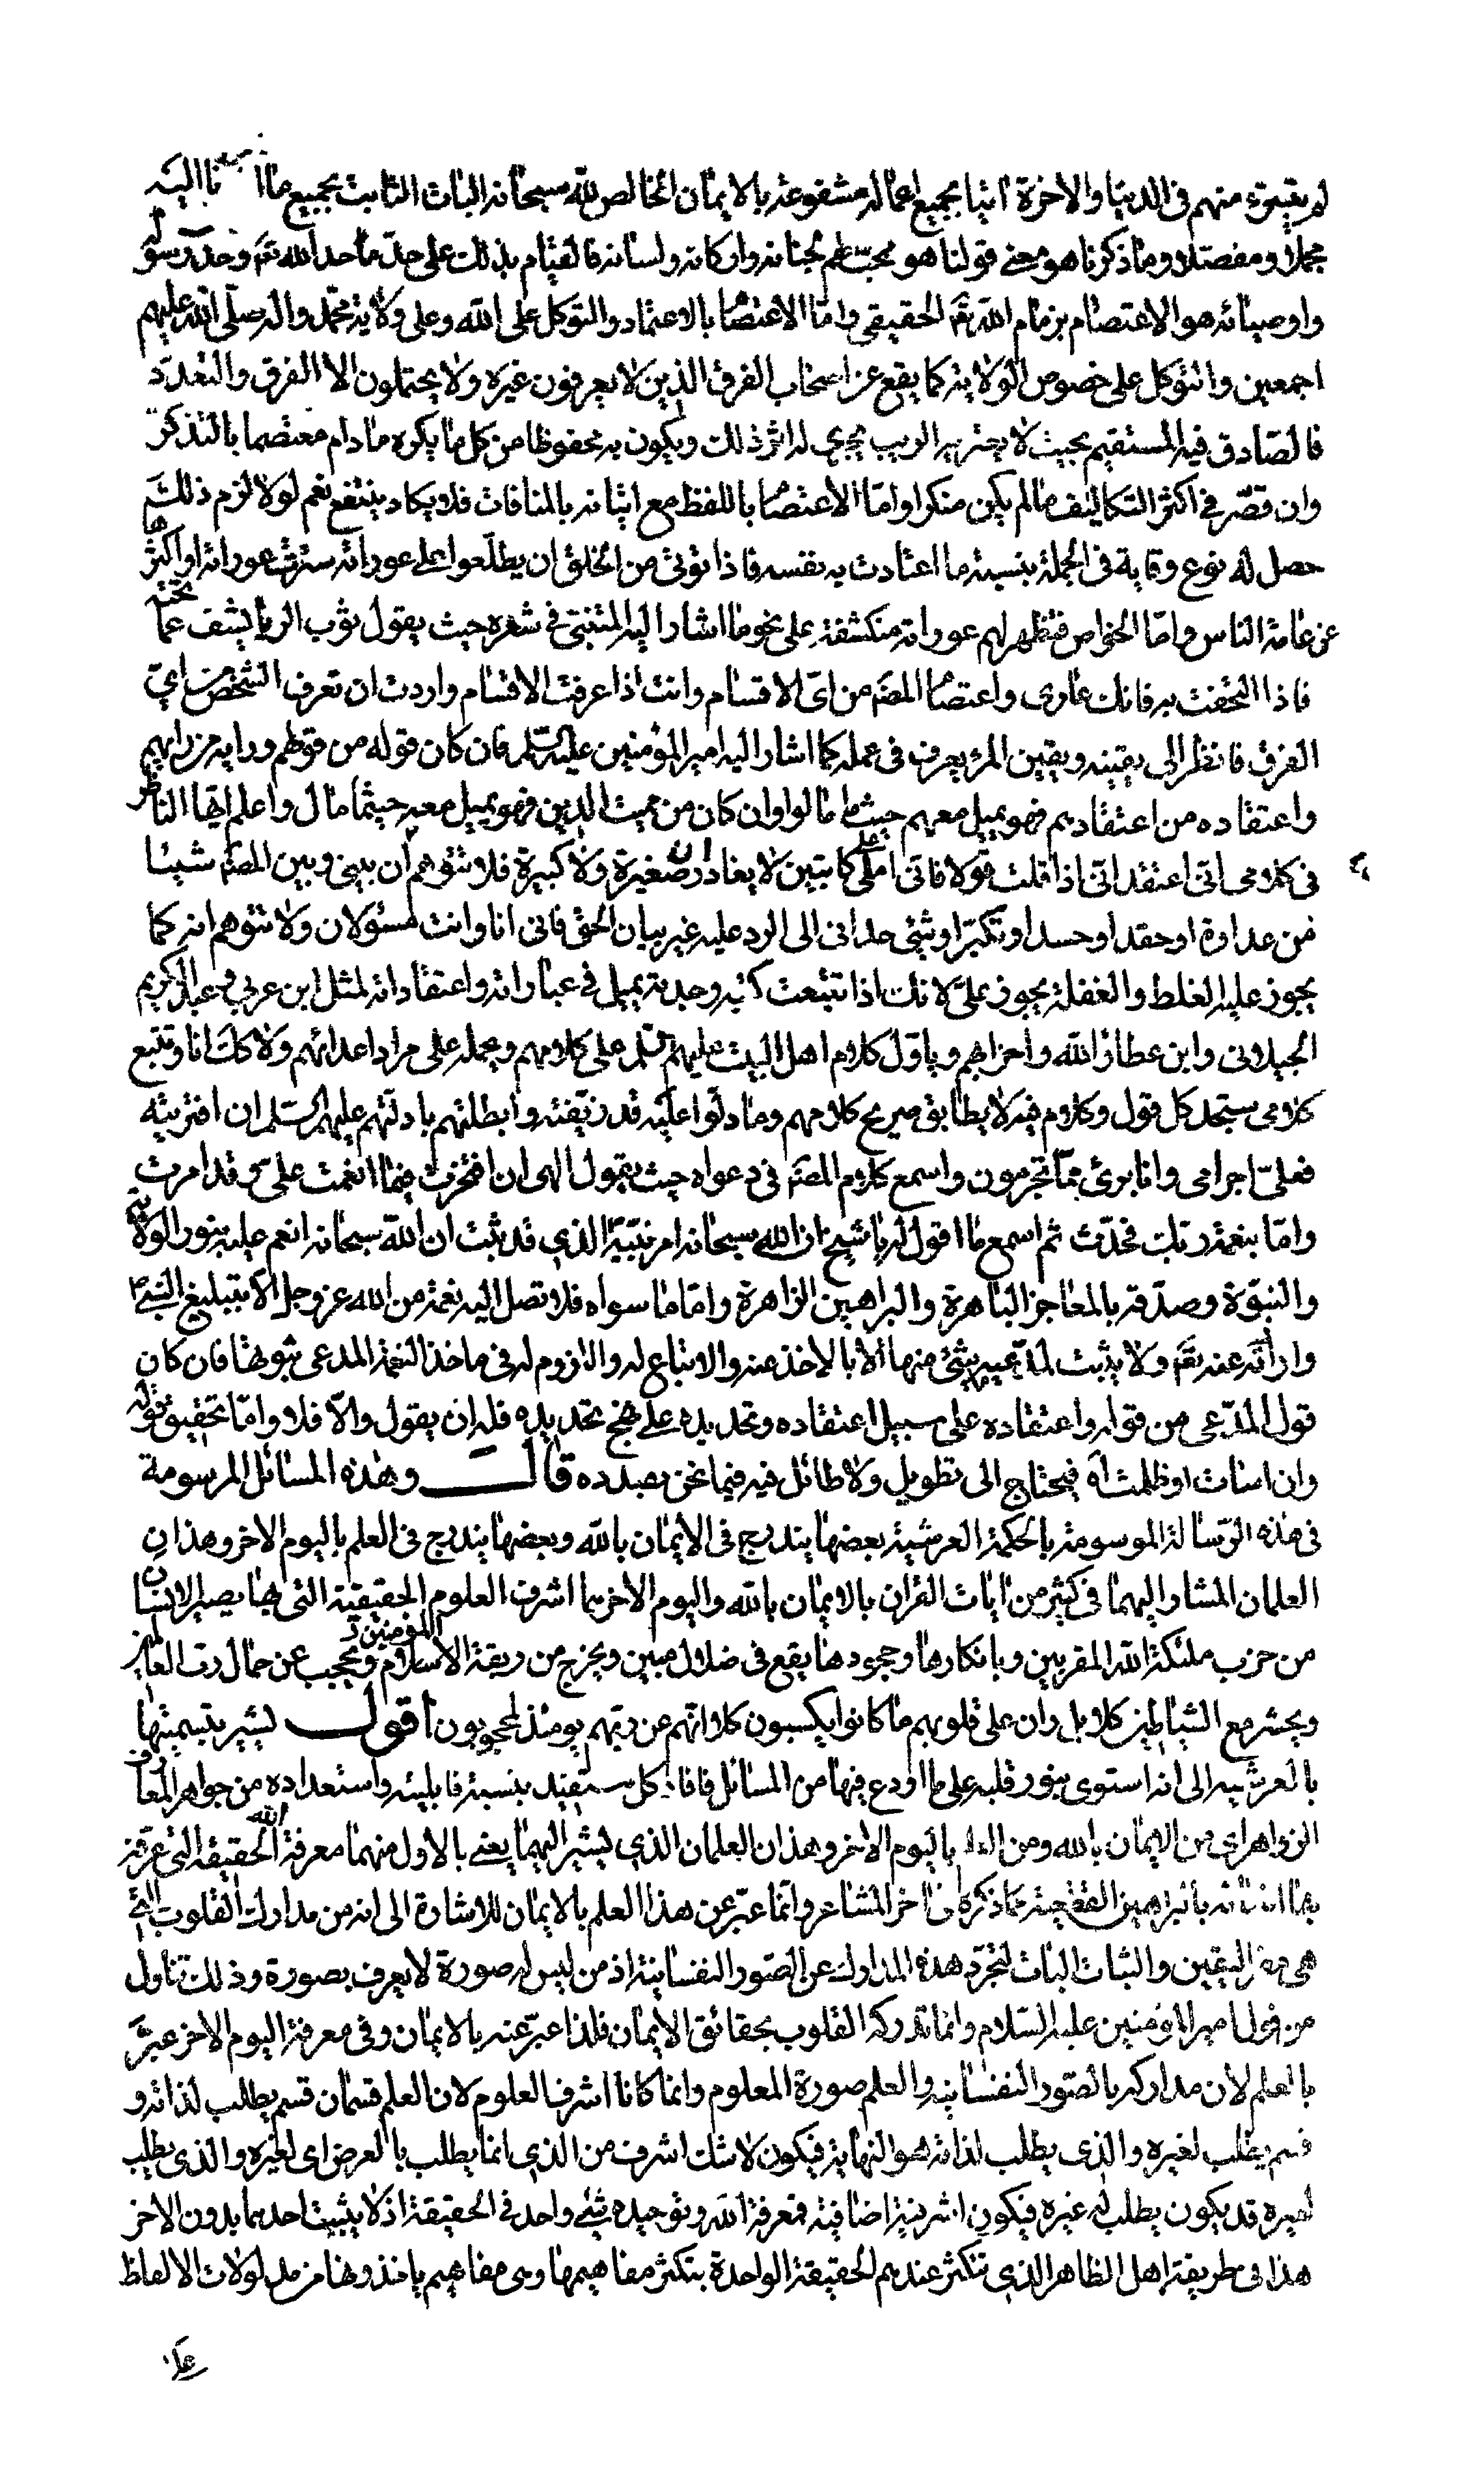 لم يقبتوء منهم فى الدنيا والاخرة اتيا بجميع اعماله مشفوعة بالايمان الخالص لله سبحانه البات الثابت بجميع ما نا اليه
مجملا ومفصلا وما ذكرنا هو معنى قولنا هو محبتهم بجنانه واركانه ولسانه فالقيام بذلك على حد ما حد الله تعم وحدد رسوله
واوصيائه هو الاعتصام بزمام الله تعم الحقيقى واما الاعتصام بالاعتماد والتوكل على الله وعلى ولاية محمد واله صلى الله عليهم
اجمعين والتوكل على خصوص الولاية كما يقع عن اصحاب الفرق الذين لا يعرفون غيره ولا يحتملون الا الفرق والتعدد
فالصادق فيه المستقيم بحيث لا يعتريه الريب يجرى له اثر ذلك ويكون به محفوظا من كل ما يكره ما دام معتصما بالتذكر
وان قصر فى اكثر التكاليف ما لم يكن منكرا واما الاعتصام باللفظ مع اتيانه بالمنافات فلا يكاد ينتفع نعم لو لازم ذلك
حصل له نوع وقاية فى الجملة بنسبة ما اعتادت به نفسه فاذا توقى من الخلق ان يطلعوا على عوراته سترت عوراته او اكثرها
عن عامة الناس واما الخواص فتظهر لهم عوراته منكشفة على نحو ما اشار اليه المتنبى فى شعره حيث يقول ثوب الريا يشف عما تحته
فاذا التحفت به فانك عارى واعتصام المصم من اى الاقسام وانت اذا عرفت الاقسام واردت ان تعرف الشخص من اى
الفرق فانظر الى يقينه ويقين المرء يعرف فى عمله كما اشار اليه امير المؤمنين عليه السلم فان كان قوله من قولهم ورايه من رايهم
واعتقاده من اعتقاديهم فهو يميل معهم حيث ما مالوا وان كان من محبت الدين فهو يميل معه حيثما مال واعلم ايها الناظر
فى كلامى انى اعتقد انى اذا قلت قولا فانى املى على كاتبين لا يغادران صغيرة ولا كبيرة فلا تتوهم ان بينى وبين المصم شيئا
من عداوة او حقد او حسد او تكبر او شئ حدانى الى الرد عليه غير بيان الحق فانى انا وانت لمسئولان ولا تتوهم انه كما
يجوز عليه الغلط والغفلة يجوز على لانك اذا تتبعت كتبه وجدته يميل فى عباراته واعتقاداته لمثل ابن عربى وعبد الكريم
الجيلانى وابن عطاء الله واحزابهم وياول كلام اهل البيت عليهم السلم على كلامهم ويحمله على مراد اعدائهم ولا كك انا وتتبع
كلامى ستجد كل قول وكلام فيه لا يطابق صريح كلامهم وما دلوا عليه قد زيفته وابطلته بادلتهم عليهم السلم ان افتريته
فعلى اجرامى وانا برئ مما تجرمون واسمع كلام المصم فى دعواه حيث يقول الهى ان افتخرت فبما انعمت على وقد امرت
واما بنعمة ربك فحدث ثم اسمع ما اقول له يا شيخ ان الله سبحانه امر نبيه الذى قد ثبت ان الله سبحانه انعم عليه بنور الولاية
والنبوة وصدقه بالمعاجز الباهرة والبراهين الزاهرة واما ما سواه فلا تصل اليه نعمة من الله عز وجل الا بتبليغ النبى
وارائه عنه تعم ولا يثبت لمدعيه شئ منها الا بالاخذ عنه والاتباع له واللازوم له فى ماخذ النعمة المدعى ثبوتها فان كان
قول المدعى من قوله واعتقاده على سبيل اعتقاده وتحديده على نهج تحديده فله ان يقول والا فلا واما تحقيق قوله
وان اسات او ظلمت آه فيحتاج الى تطويل ولا طائل فيه فيما نحن بصدده قال وهذه المسائل المرسومة
فى هذه الرسالة الموسومة بالحكمة العرشية بعضها يندرج فى الايمان بالله وبعضها يندرج فى العلم باليوم الاخر وهذان
العلمان المشار اليهما فى كثير من ايات القران بالايمان بالله واليوم الاخر هما اشرف العلوم الحقيقية التى بها يصير الانسان
من حزب ملئكة الله المقربين وبانكارها وجحودها يقع فى ضلال مبين ويخرج من ربقة الاسلام المؤمنين ويحجب عن جمال رب العالمين
ويحشر مع الشياطين كلا بل ران على قلوبهم ما كانوا يكسبون كلا انهم عن ربهم يومئذ لمحجوبون اقول يشير بتسميتها
بالعرشيه الى انه استوى بنور قلبه على ما اودع فيها من المسائل فافاد كل مستفيد بنسبة قابليته واستعداده من جواهر المعارف
الزواهر اى من الايمان بالله ومن العلم باليوم الاخر وهذان العلمان الذى يشير اليهما يعنى بالاول منهما معرفة الله الحقيقة التى عرفه
بها بالبراهين القطعية مما ذكره فى اخر المشاعر وانما عبر عن هذا العلم بالايمان للاشارة الى انه من مدارك القلوب التى
هى مقر اليقين والثبات البات لتجرد هذه المدارك عن الصور النفسانية اذ من ليس له صورة لا يعرف بصورة وذلك تناول
من قول امير المؤمنين عليه السلام وانما تدركه القلوب بحقائق الايمان فلذا عبر عنه بالايمان وفى معرفة اليوم الاخر عبر
بالعلم لان مداركه بالصور النفسانيه والعلم صورة المعلوم وانما كانا اشرف العلوم لان العلم قسمان قسم يطلب لذاته و
قسم يطلب لغيره والذى يطلب لذاته هو النهاية فيكون لا شك اشرف من الذى انما يطلب بالعرض اى لغيره والذى يطلب
لغيره قد يكون يطلب له غيره فيكون اشرفية اضافية فمعرفة الله وتوحيده شئ واحد فى الحقيقة اذ لا يثبت احدهما بدون الاخر
هذا فى طريقة اهل الظاهر الذى تتكثر عندهم الحقيقة الواحدة بتكثر مفاهيمها وهى مفاهيم ياخذونها من مدلولات الالفاظ